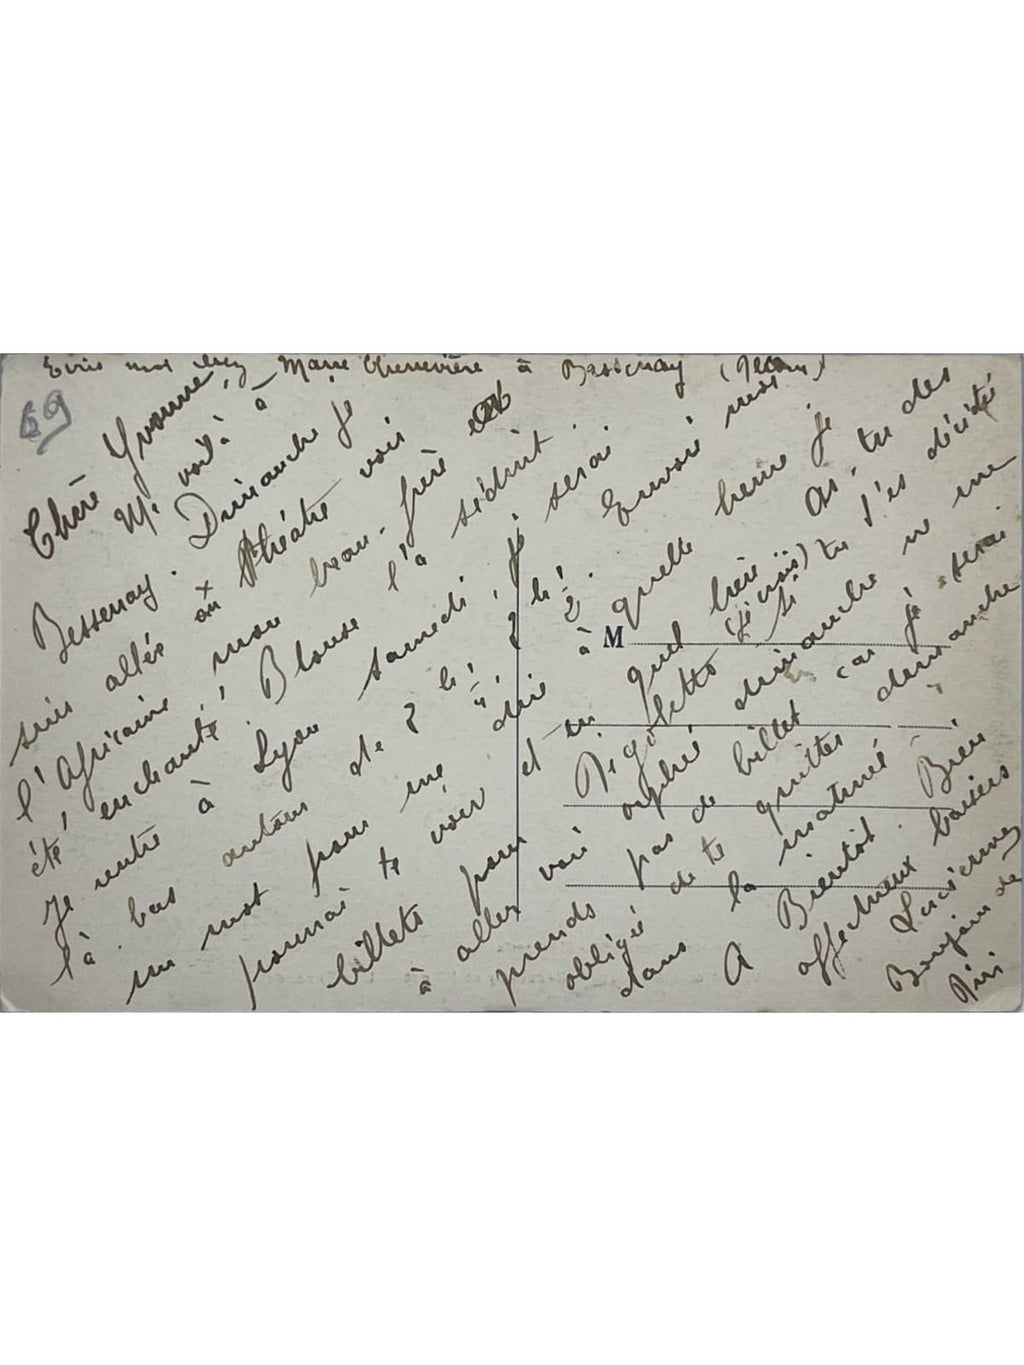 Ecris moi chez Marie Chenevière à Bessenay
69
Chère Yvonne,
Me voilà à
Bessenay. Dimanche je
suis allée au théâtre voir
l'Africaine, mon beau-frère
été enchanté, Blouse l'a séduit.
Je rentre à Lyon samedi, je serai
là bas autour de 2 h, 2 h 1/2. Envoie moi
un mot pour me dire à quelle heure je
pourrai te voir et en quel lieu. As-tu des
billets pour Rigoletto (je crois) Si tu t'es décidée
à aller voir orphée dimanche ne me
prends pas de billet car je serai
obligée de te quitter dimanche
dans la matinée.
A Bientôt. Bien
affectueux baisers
Lucienne
Bonjour de
Riri
M